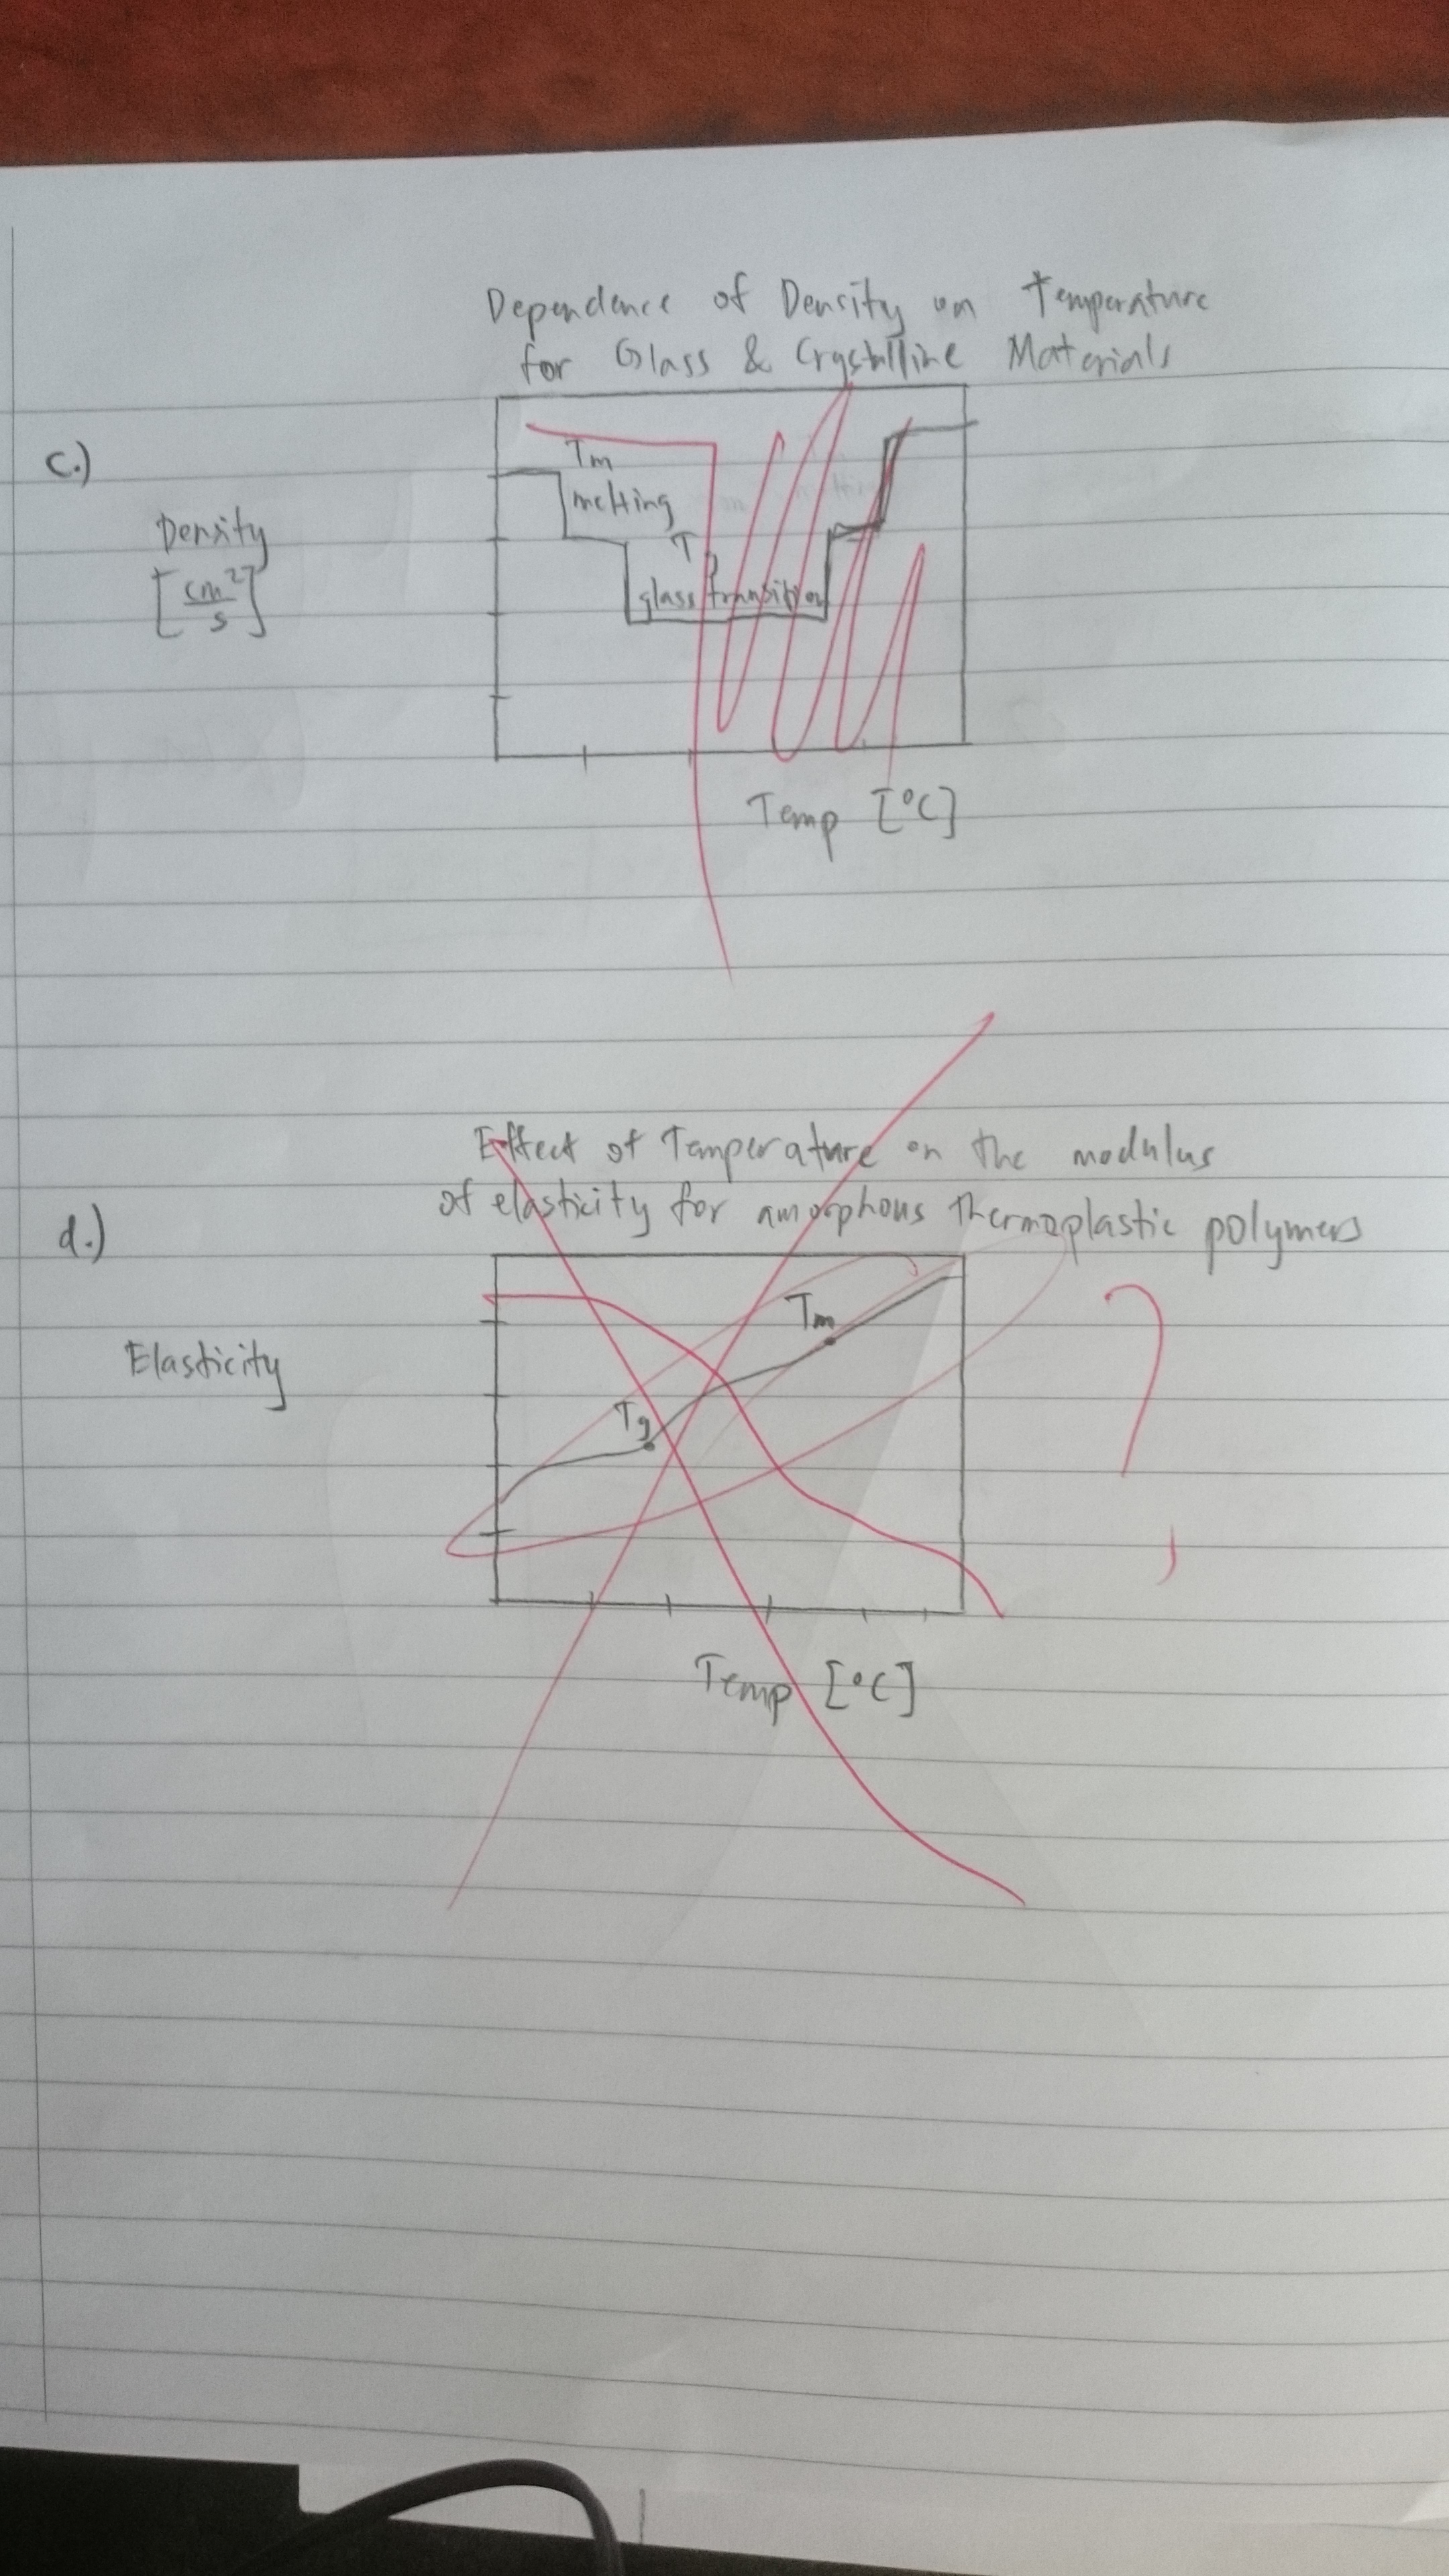 Dependence of Density on Temperature
for Glass & Crystalline Materials
c.)
Tm
melting
Density
[cm²/s]
Tg
glass transition
Temp [°C]
Effect of Temperature on the modulus
of elasticity for amorphous thermoplastic polymers
d.)
Tm
Elasticity
Tg
Temp [°C]